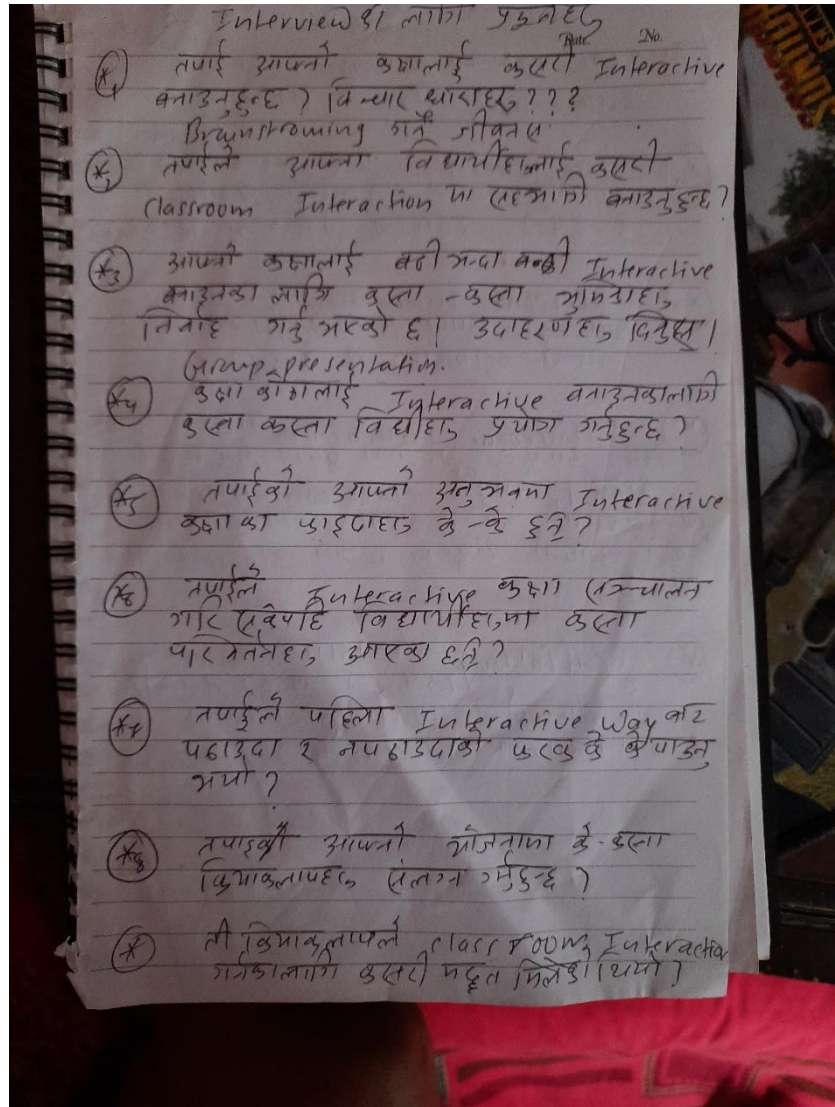 Interview का लागि प्रश्नहरु
Date. No.
*1 तपाई आफ्नो कक्षालाई कसरी Interactive
बनाउनुहुन्छ ? विचार धाराहरु ???
Brainstroming गर्ने जीवनस
*2 तपाईले आफ्ना विद्यार्थीहरुलाई कसरी
Classroom Interaction मा सहभागि बनाउनुहुन्छ ?
*3 आफ्नो कक्षालाई बढी भन्दा बढी Interactive
बनाउनका लागि कस्ता - कस्ता भुमिकाहरु
निर्वाह गर्नु भएको छ। उदाहरणहरु दिनुहोस्।
Group presentation.
*4 कक्षा कोठालाई Interactive बनाउनकालागि
कस्ता कस्ता विधीहरु प्रयोग गर्नुहुन्छ ?
*5 तपाईको आफ्नो अनुभवमा Interactive
कक्षा का फाइदाहरु के - के हुन् ?
*6 तपाईले Interactive कक्षा सञ्चालन
गरि सकेपछि विद्यार्थीहरुमा कस्ता
परिवर्तनहरु आएका छन् ?
*7 तपाईले पहिला Interactive way बाट
पढाउदा र नपढाउदाको फरक के के पाउनु
भयो ?
*8 तपाइको आफ्नो योजनामा के - कस्ता
क्रियाकलापहरु संलग्न गर्नुहुन्छ ?
* ती क्रियाकलापले classroom Interaction
गर्नकालागि कसरी मद्दत मिलेको थियो ?